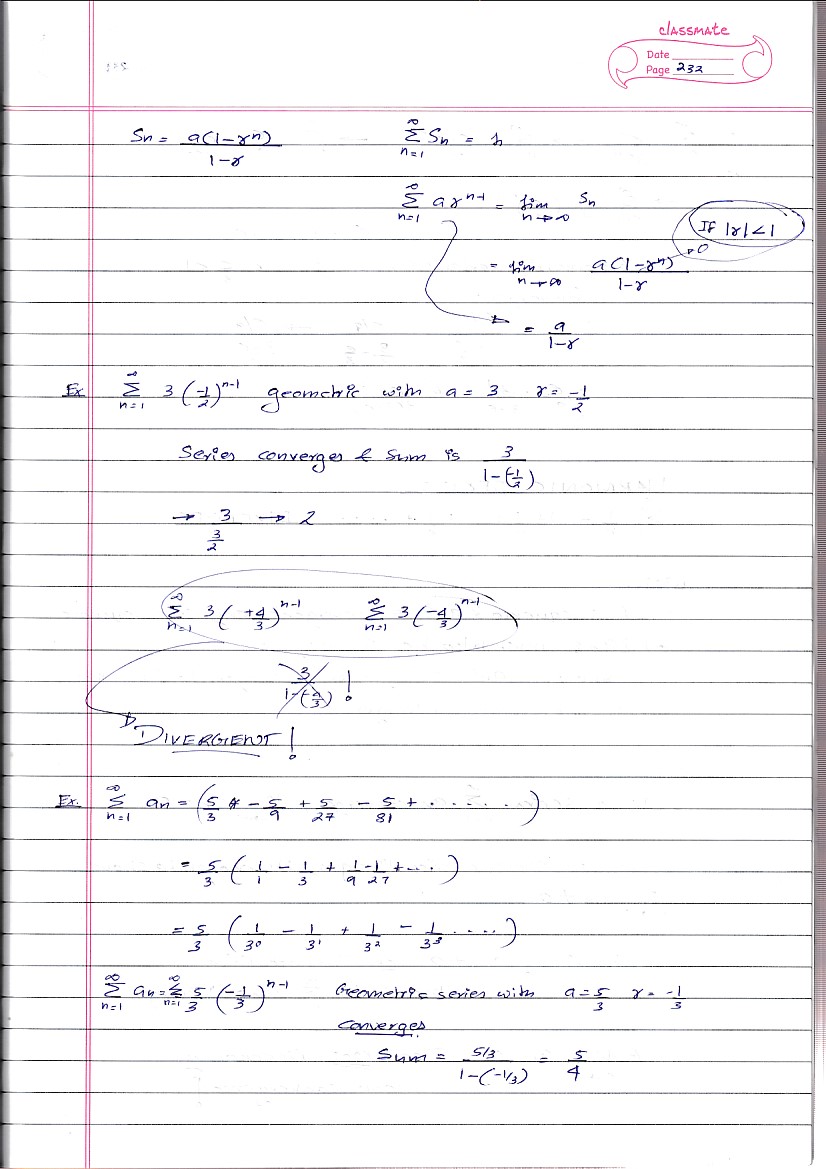 classmate
Date
Page 232
Sn = a(1-r^n) / 1-r
∞ Σ n=1 Sn = s
∞ Σ n=1 ar^n-1 = lim n→∞ Sn
If |r|<1
= lim n→∞ a(1-r^n) / 1-r → 0
= a / 1-r
Ex ∞ Σ n=1 3(-1/2)^n-1 geometric with a = 3 r = -1/2
Series converges & sum is 3 / 1-(-1/2)
→ 3 / 3/2 → 2
∞ Σ n=1 3(+4/3)^n-1 ∞ Σ n=1 3(-4/3)^n-1
3 / 1-(-4/3) !
DIVERGENT!
Ex. ∞ Σ n=1 an = (5/3 - 5/9 + 5/27 - 5/81 + ......)
= 5/3 (1/1 - 1/3 + 1/9 - 1/27 + ...)
= 5/3 (1/3^0 - 1/3^1 + 1/3^2 - 1/3^3 ....)
∞ Σ n=1 an = ∞ Σ n=1 5/3 (-1/3)^n-1 Geometric series with a = 5/3 r = -1/3
converges
Sum = 5/3 / 1-(-1/3) = 5/4